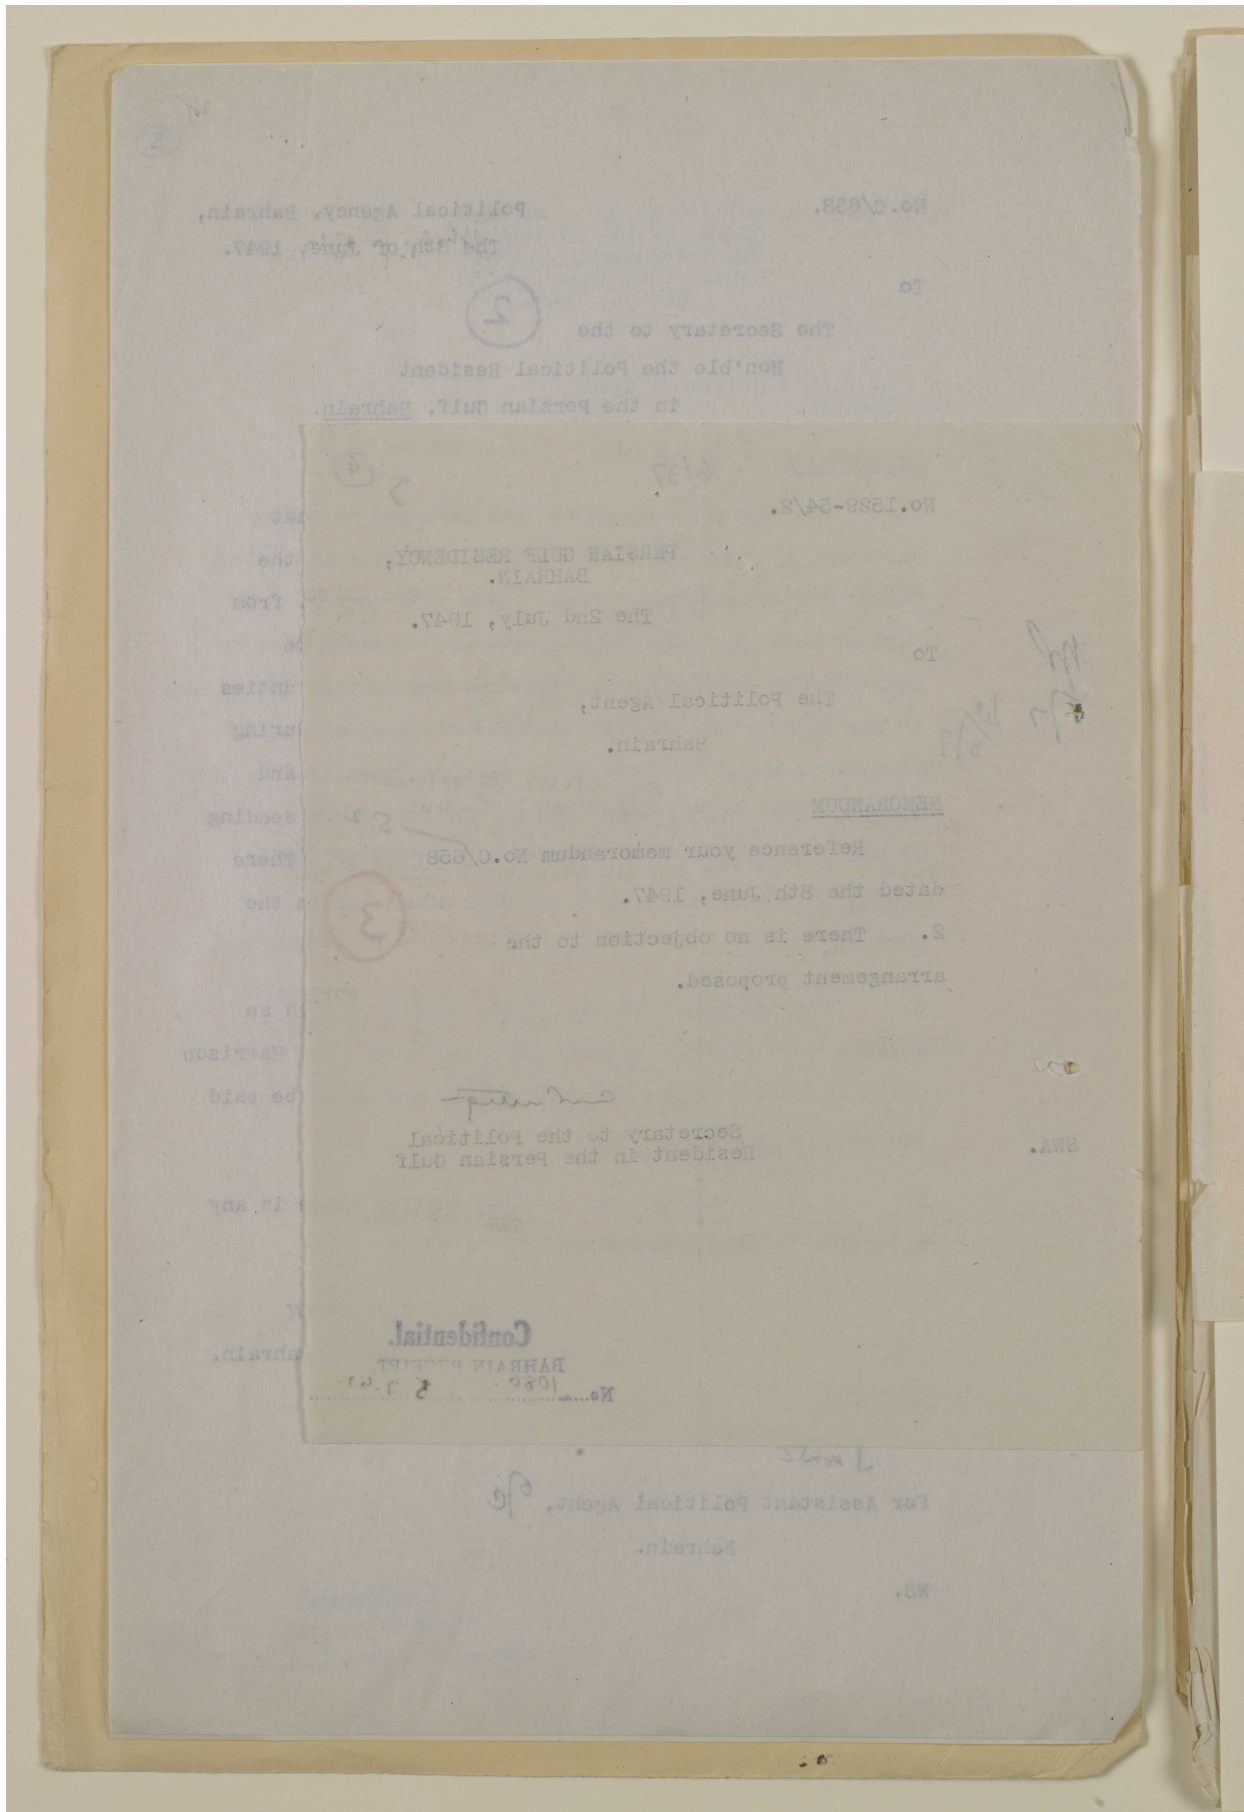 No.C/658.
Political Agency, Bahrain,
The 8th of June, 1947.
To
2
The Secretary to the
Hon'ble the Political Resident
in the Persian Gulf, Bahrain.
4
6/37
No.1529-54/2.
PERSIAN GULF RESIDENCY,
BAHRAIN.
The 2nd July, 1947.
To
The Political Agent,
Bahrain.
MEMORANDUM
Reference your memorandum No.C/658
dated the 8th June, 1947.
3
2. There is no objection to the
arrangement proposed.
Secretary to the Political
Resident in the Persian Gulf
SWA.
Confidential.
BAHRAIN RECEIPT
No. 1080 5.7.47
the
from
duties
and
sending
There
the
an
Harrison
be paid
is any
For Assistant Political Agent,
Bahrain.
NS.